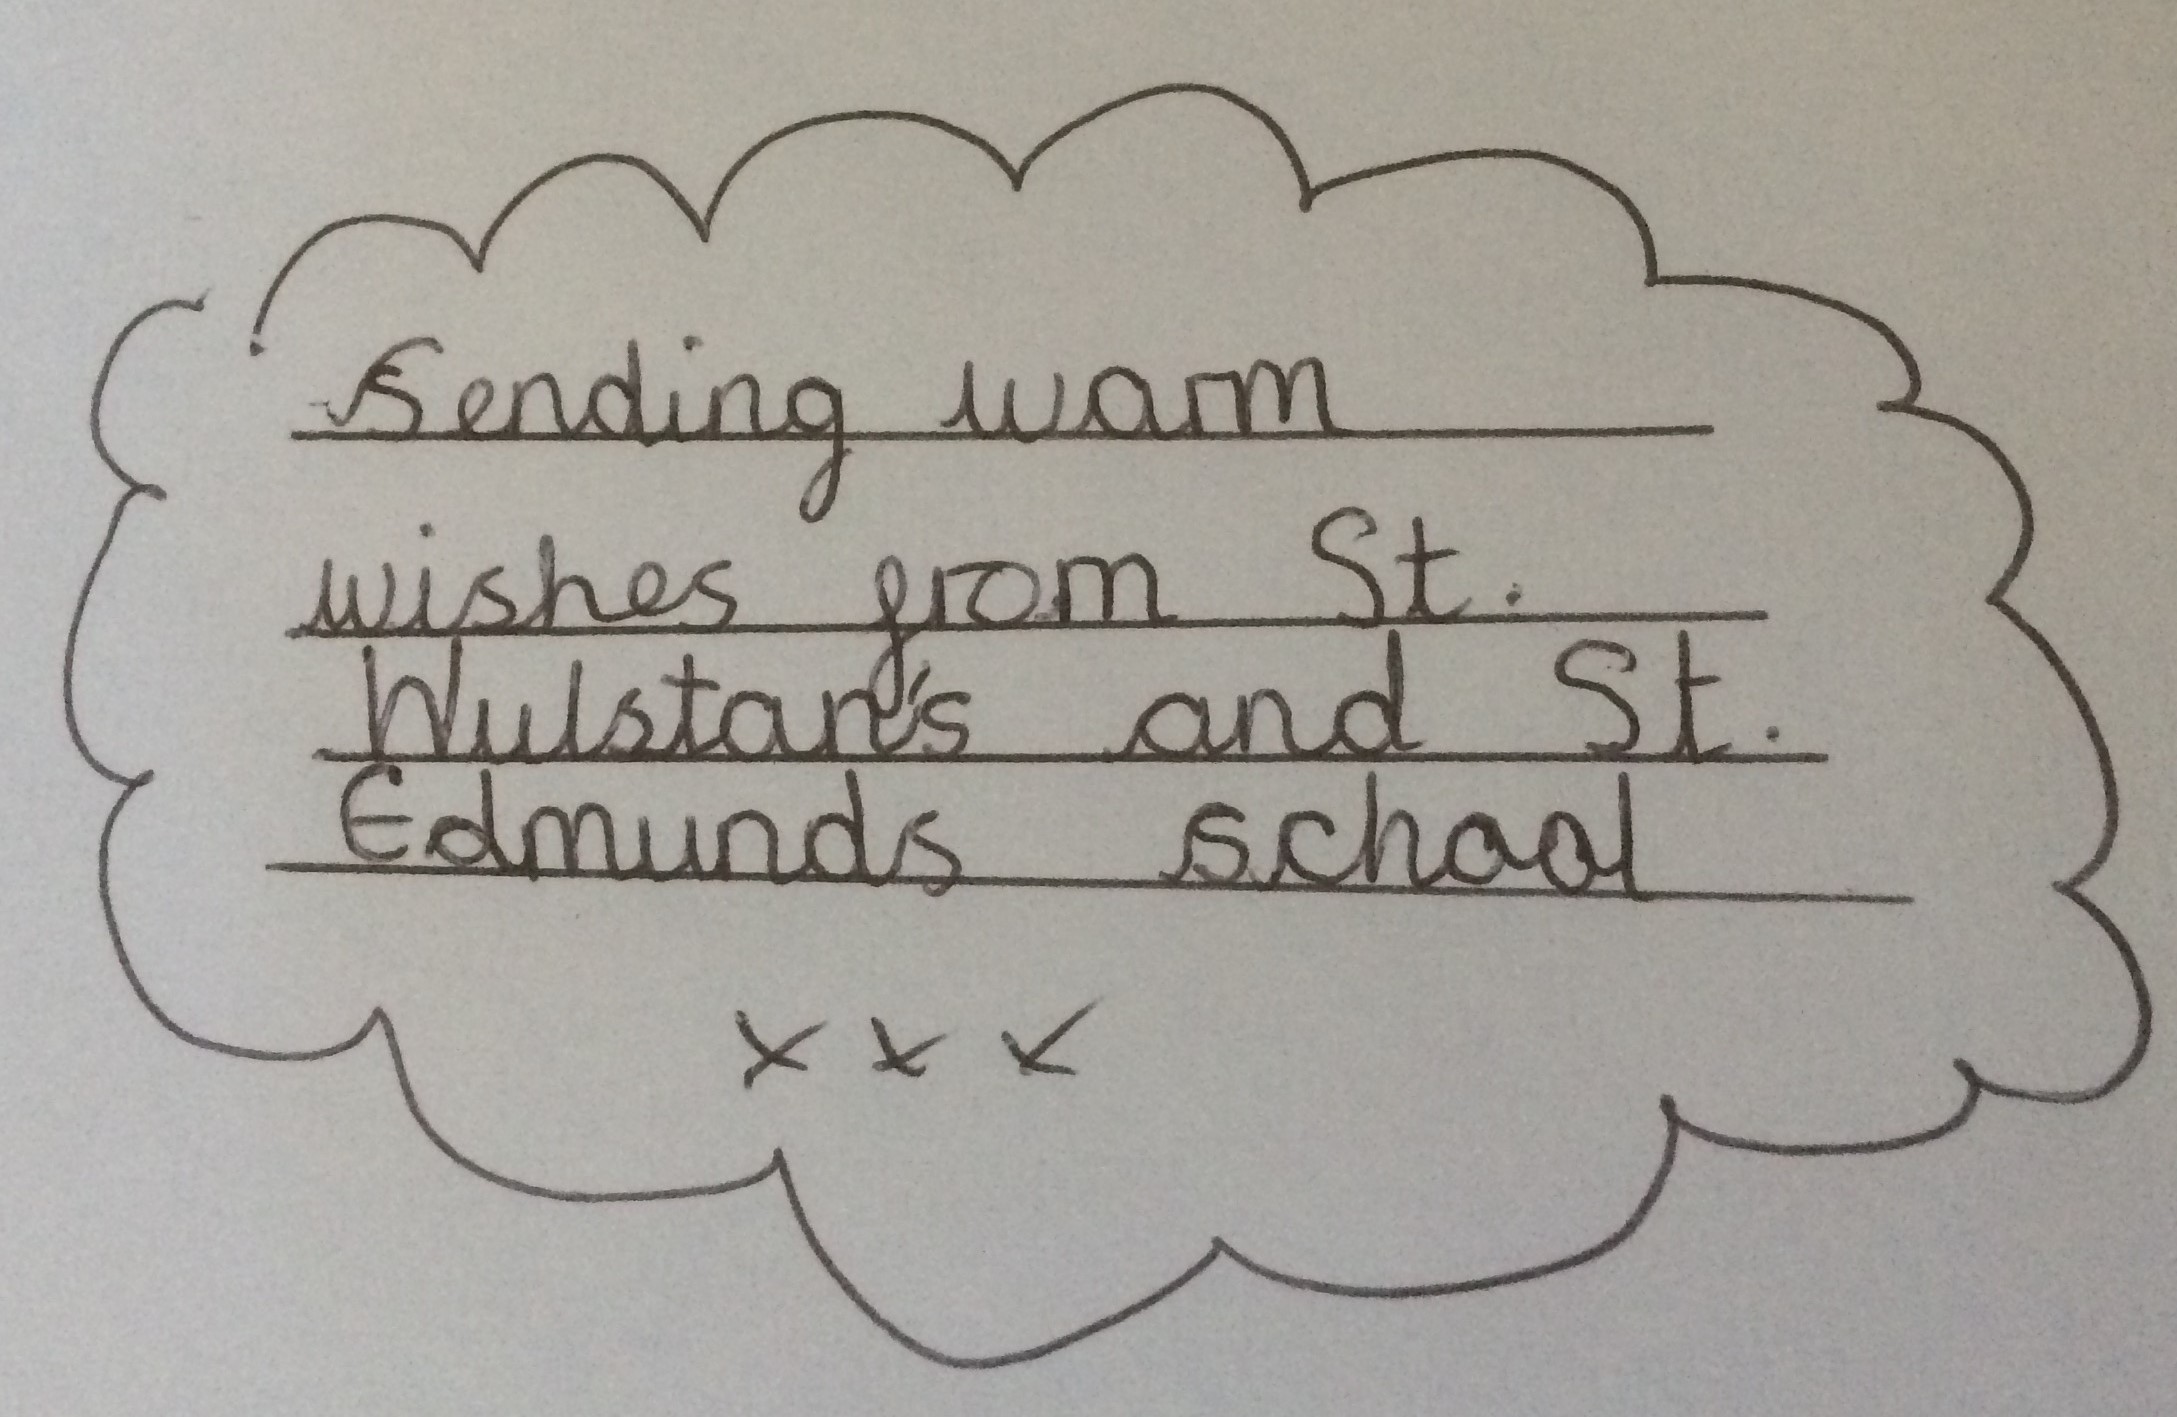 Sending warm
wishes from St.
Wulstan's and St.
Edmunds school
x x x